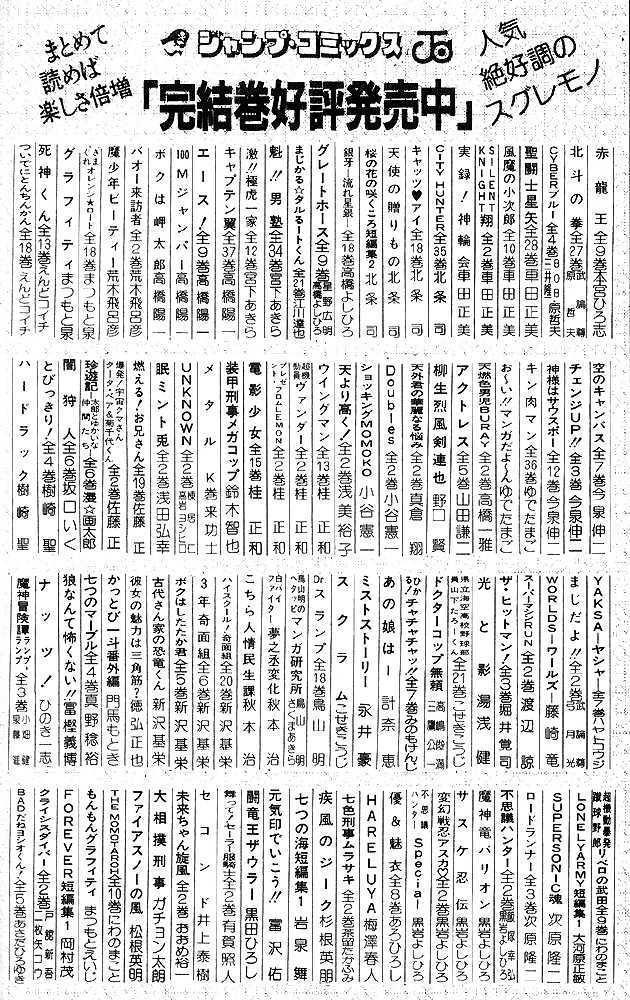 まとめて
読めば
楽しさ倍増
ジャンプ・コミックス
人気
絶好調の
スグレモノ
「完結巻好評発売中」
赤龍王 全9巻 本宮ひろ志
北斗の拳 全27巻 武論尊 原哲夫
CYBERブルー 全4巻 BOB 三井隆一 原哲夫
聖闘士星矢 全28巻 車田正美
風魔の小次郎 全10巻 車田正美
SILENT KNIGHT翔 全2巻 車田正美
実録!神輪会 車田正美
CITY HUNTER 全35巻 北条司
キャッツ♥アイ 全18巻 北条司
天使の贈りもの 北条司
桜の花の咲くころ 短編集2 北条司
銀牙―流れ星 銀― 全18巻 高橋よしひろ
グレートホース 全9巻 星野広明 高橋よしひろ
まじかる☆タルるートくん 全21巻 江川達也
魁!!男塾 全34巻 宮下あきら
激!!極虎一家 全12巻 宮下あきら
キャプテン翼 全37巻 高橋陽一
エース! 全9巻 高橋陽一
100Mジャンパー 高橋陽一
ボクは岬太郎 高橋陽一
バオー来訪者 全2巻 荒木飛呂彦
魔少年ビーティー 荒木飛呂彦
きまぐれオレンジ★ロード 全18巻 まつもと泉
グラフィティ まつもと泉
死神くん 全13巻 えんどコイチ
ついでにとんちんかん 全18巻 えんどコイチ
空のキャンバス 全7巻 今泉伸二
チェンジUP!! 全3巻 今泉伸二
神様はサウスポー 全12巻 今泉伸二
キン肉マン 全36巻 ゆでたまご
お〜い!マンガだよ〜ん ゆでたまご
天燃色男児BURAY 全2巻 高橋一雅
アクトレス 全5巻 山田謙二
柳生烈風剣連也 野口賢
天外君の華麗なる悩み 全2巻 真倉翔
Doubles 全2巻 小谷憲一
ショッキングMOMOKO 小谷憲一
天より高く! 全2巻 浅美裕子
ウイングマン 全13巻 桂正和
超機動員ヴァンダー 全2巻 桂正和
プレゼント・フロムLEMON 全2巻 桂正和
電影少女 全15巻 桂正和
装甲刑事メガコップ 鈴木智也
メタルK 巻来功士
UNKNOWN 全2巻 榎居仁 高岩ヨシヒロ
眠兎 全2巻 浅田弘幸
燃える!お兄さん 全19巻 佐藤正
爆発!宇宙クマさん クータ・ベア&菊千代くん 全2巻 佐藤正
珍遊記―太郎とゆかいな仲間たち― 全6巻 漫☆画太郎
闇狩人 全6巻 坂口いく
とびっきり! 全4巻 樹崎聖
ハードラック 樹崎聖
YAKSA―ヤシャ― 全7巻 ハヤトコウジ
まじだよ!! 全2巻 武論尊 弓月光
WORLDS―ワールズ― 藤崎竜
スーパーマシンRUN 全2巻 渡辺諒
ザ・ヒットマン! 全3巻 堀井覚司
光と影 湯浅健
県立海空高校野球部員山下たろーくん 全21巻 こせきこうじ
ドクターコップ無頼 高嶋俊満 三鷹公一
ひかる!チャチャチャッ!! 全7巻 みのもけんじ
あの娘は― 計奈恵
ミストストーリー 永井豪
スクラム こせきこうじ
Drスランプ 全18巻 鳥山明
鳥山明のヘタッピマンガ研究所 鳥山明 さくまあきら
白バイファイター 夢之丞変化 秋本治
こちら人情民生課 秋本治
ハイスクール!奇面組 全20巻 新沢基栄
3年奇面組 全6巻 新沢基栄
ボクはしたたか君 全5巻 新沢基栄
古代さん家の恐竜くん 新沢基栄
彼女の魅力は三角筋? 徳弘正也
かっとび一斗番外編 門馬もとき
七つのマーブル 全4巻 真野稔裕
狼なんて怖くない!! 冨樫義博
ナッツ! ひのき一志
魔神冒険譚ランプ・ランプ 全3巻 小畑健 泉藤進
超機動暴発蹴球野郎リベロの武田 全3巻 にわのまこと
LONELY ARMY 短編集1 大河原正敏
SUPERSONIC魂 次原隆二
ロードランナー 全3巻 次原隆二
不思議ハンター 全2巻 飯塚幸弘 黒岩よしひろ
魔神竜バリオン 黒岩よしひろ
サスケ忍伝 黒岩よしひろ
変幻戦忍アスカ♡ 全2巻 黒岩よしひろ
不思議ハンターSpecial 黒岩よしひろ
優&魅衣 全8巻 あろひろし
HARELUYA 梅澤春人
七色刑事ムラサキ 全2巻 蒸留たかふみ
疾風のジーク 杉根英明
七つの海 短編集1 岩泉舞
元気印でいこう!! 富沢佑
闘竜王ザウラー 黒田ひろし
舞って!セーラー服騎士 全2巻 有賀照人
セコンド 井上泰樹
未来ちゃん旋風 全2巻 おおめ裕一
大相撲刑事 ガチョン太朗
ファイアスノーの風 松根英明
THE MOMOTAROH 全10巻 にわのまこと
もんもんグラフィティ まつもとえいじ
FOREVER 短編集1 岡村茂
クライシスダイバー 全2巻 戸舘新吾 二枚矢コウ
BADだねヨシオくん! 全5巻 あさだひろゆき